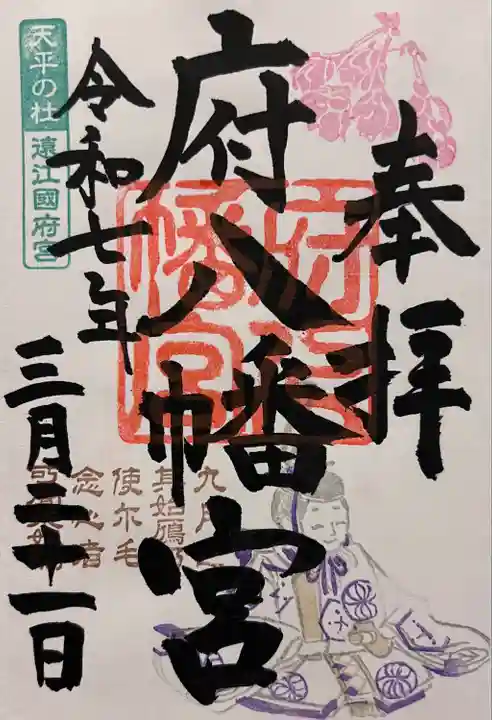 奉拝
府八幡宮
令和七年
三月二十一日
天平の杜
遠江國府宮
府八
幡宮
九月
其始鴈
使尓毛
念心者